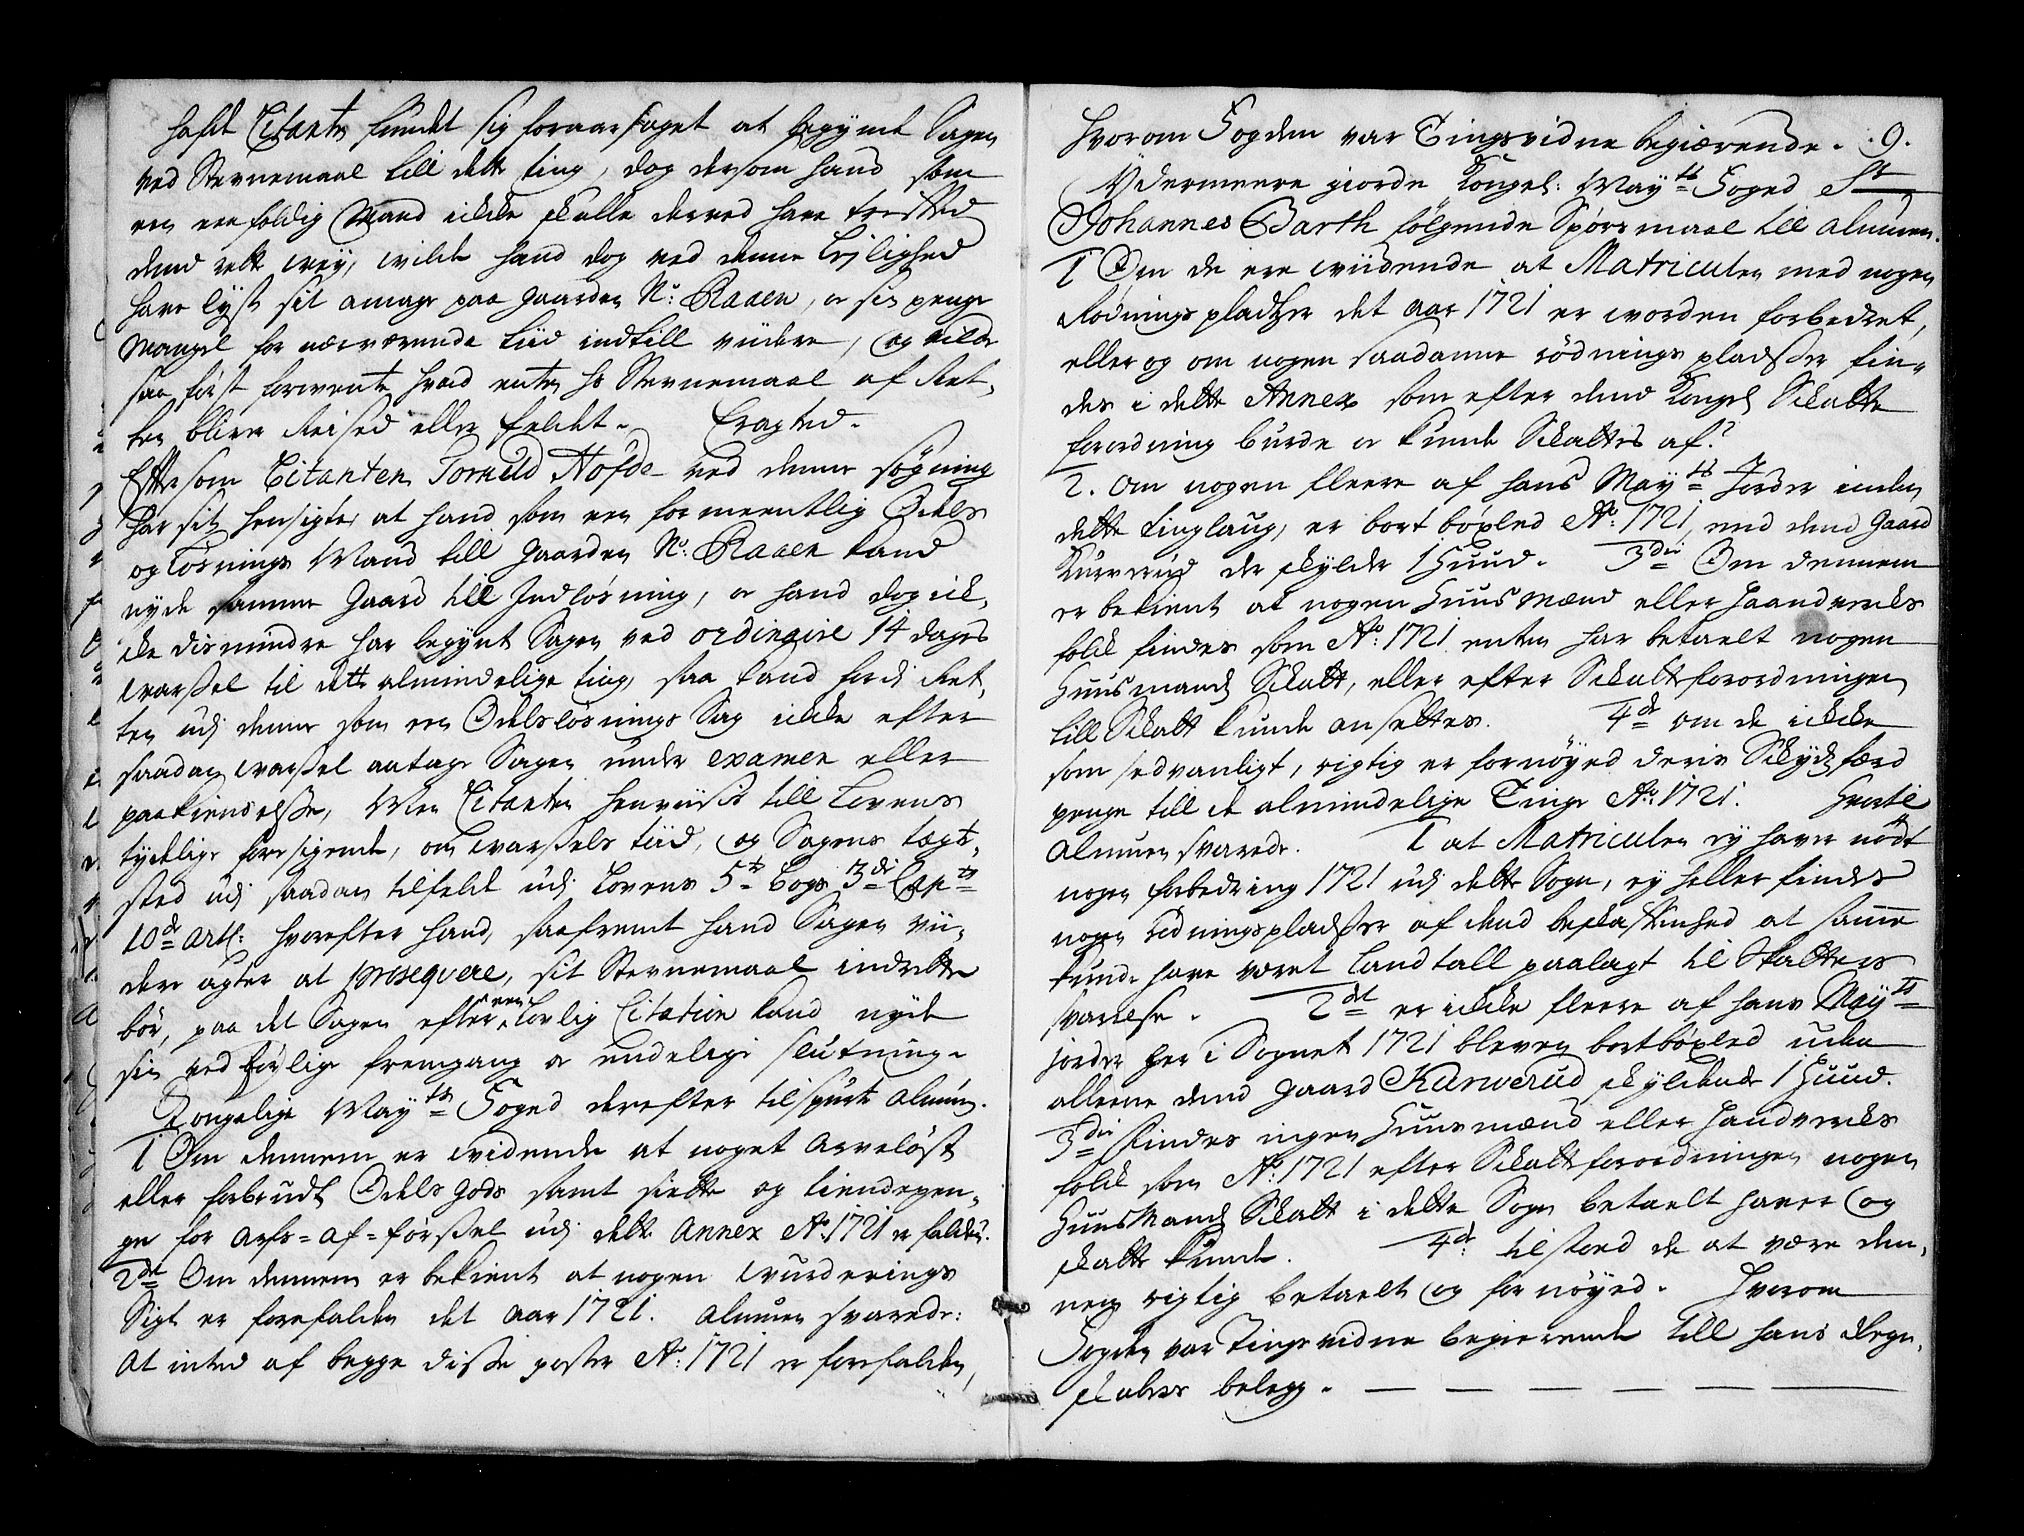 hafde Citanten fundet sig foraarsaget at begynt Sagen
ved Stevnemaal till dette ting, dog dersom hand som
een eenfoldig Mand icke skulle derved have
dend rette vey, wilde hand dog ved denne leylighed
have lyst sit paa gaarden No: Raaen, oc sin penge
Mangel for nærværende tiid indtill viidere, og vilde
saa først forvente hvad enten hs Stevnemaal af Ret,
ten bliver Reised eller feldet. Eragted.
Eftersom Citanten Tormeld Hofde ved denne søgning
har sin hensigte, at hand som een formeentlig Odels
og Løsnings Mand till gaarden No: Raaen kand
nyde samme Gaard till Indløsning, oc hand dog ik,
cke dismindre har begynt Sagen ved ordinaire 14 dages
warssel til dette almindelige ting, saa kand fordi Ret,
ten udj denne som een Odelsløsnings Sag icke efter
saadan warssel antage Sagen under examen eller
paakiendelsse, Men Citanten henviises till Lovens
tydelige foresigende, om warssels tiid, og Sagens tægt,
sted udj saadan tilfelde udj Lovens 5te Bogs 3die Capts
10de Artl: hvorefter hand, saafremt hand Sagen vii,
dere agter at proseqvere, sit Stevnemaal indrette
bør, paa det Sagen efter een Lovlig Citation kand nyde
sin ved børlige fremgang oc endelige slutning.
Kongelige Mayts Foged derefter tilspurte almuen.
1 Om dennem er vidende at noget arveløst
eller forbrudt Odels gods samt siette og tiendepen,
ge for arfs-af-førssel udj dette Annex Ao. 1721 er falden?
2de Om dennem er bekient at nogen wurderings
Sigt er forefalden det aar 1721. almuen svarede:
At inted af begge disse poster Ao: 1721 er forefalden,
hvorom Fogden var Tingsvidne begiærende. 9.
Ydermeere giorde Kongel: Mayts Foged Sr
Johannes Barth følgende Spørsmaal till almuen.
1 Om de ere wiidende at Matriculen med nogen
Rødnings pladtzer det aar 1721 er worden forbedret,
eller og om nogen saadanne rødnings pladsser fin,
des i dette Annex som efter dend Kongel Skatte
forordning burde oc kunde Skattes af?
2. Om nogen fleere af hans Mayts Jorder inden
dette tinglaug, er bortbøxled Ao: 1721, end dend Gaard
Kurverud der skylder 1 Huud. 3die Om dennem
er bekient at nogen Huusmænd eller haandverks
folk findes som Ao: 1721 enten har betaelt nogen
Huusmands Skatt, eller efter Skatteforordningen
till Skatt kunde ansættes. 4de om de icke
som sedvanligt, rigtig er fornøyed deris Skydsfærd
penge till de almindelige Tinge Ao: 1721. Hvortil
Almuen svarede. 1 at Matriculen ey haver nødt
nogen forbedring 1721 udj dette Sogn, ey heller findes
nogen rødningspladsser af dend beskaffenhed at samme
kunde have været Landtall paalagt til Skatters
svarelse. 2det er icke fleere af hans Mayts
jorder her i Sognet 1721 bleven bortbøxled uden
alleene dend gaard Kurwerud skyldende 1 Huud.
3die Findes ingen Huusmænd eller Haandverks
folk som Ao: 1721 efter Skatteforordningen nogen
Huusmands Skatt i dette Sogn betaelt haver og
skatte kunde. 4de: tilstoed de at være den,
nem rigtig betaelt og fornøyed. Hvorom
Fogden var Tingsvidne begierende till hans Regn,
skabers belæg.